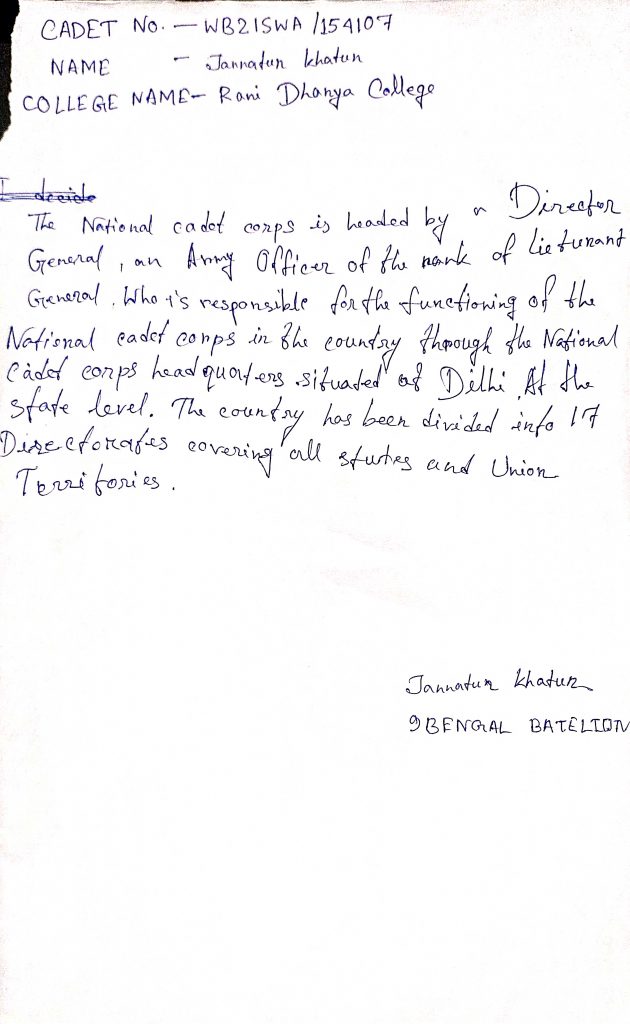 CADET NO. — WB21SWA/154107
NAME — Jannatun khatun
COLLEGE NAME— Rani Dhanya College
I decide
The National cadet corps is headed by a Director
General, an Army Officer of the rank of lieturant
General. Who is responsible for the functioning of the
National cadet corps in the country through the National
Cadet corps headquarters situated at Dilhi. At the
state level. The country has been divided into 17
Directorates covering all states and Union
Territories.
Jannatun khatun
9 BENGAL BATELION